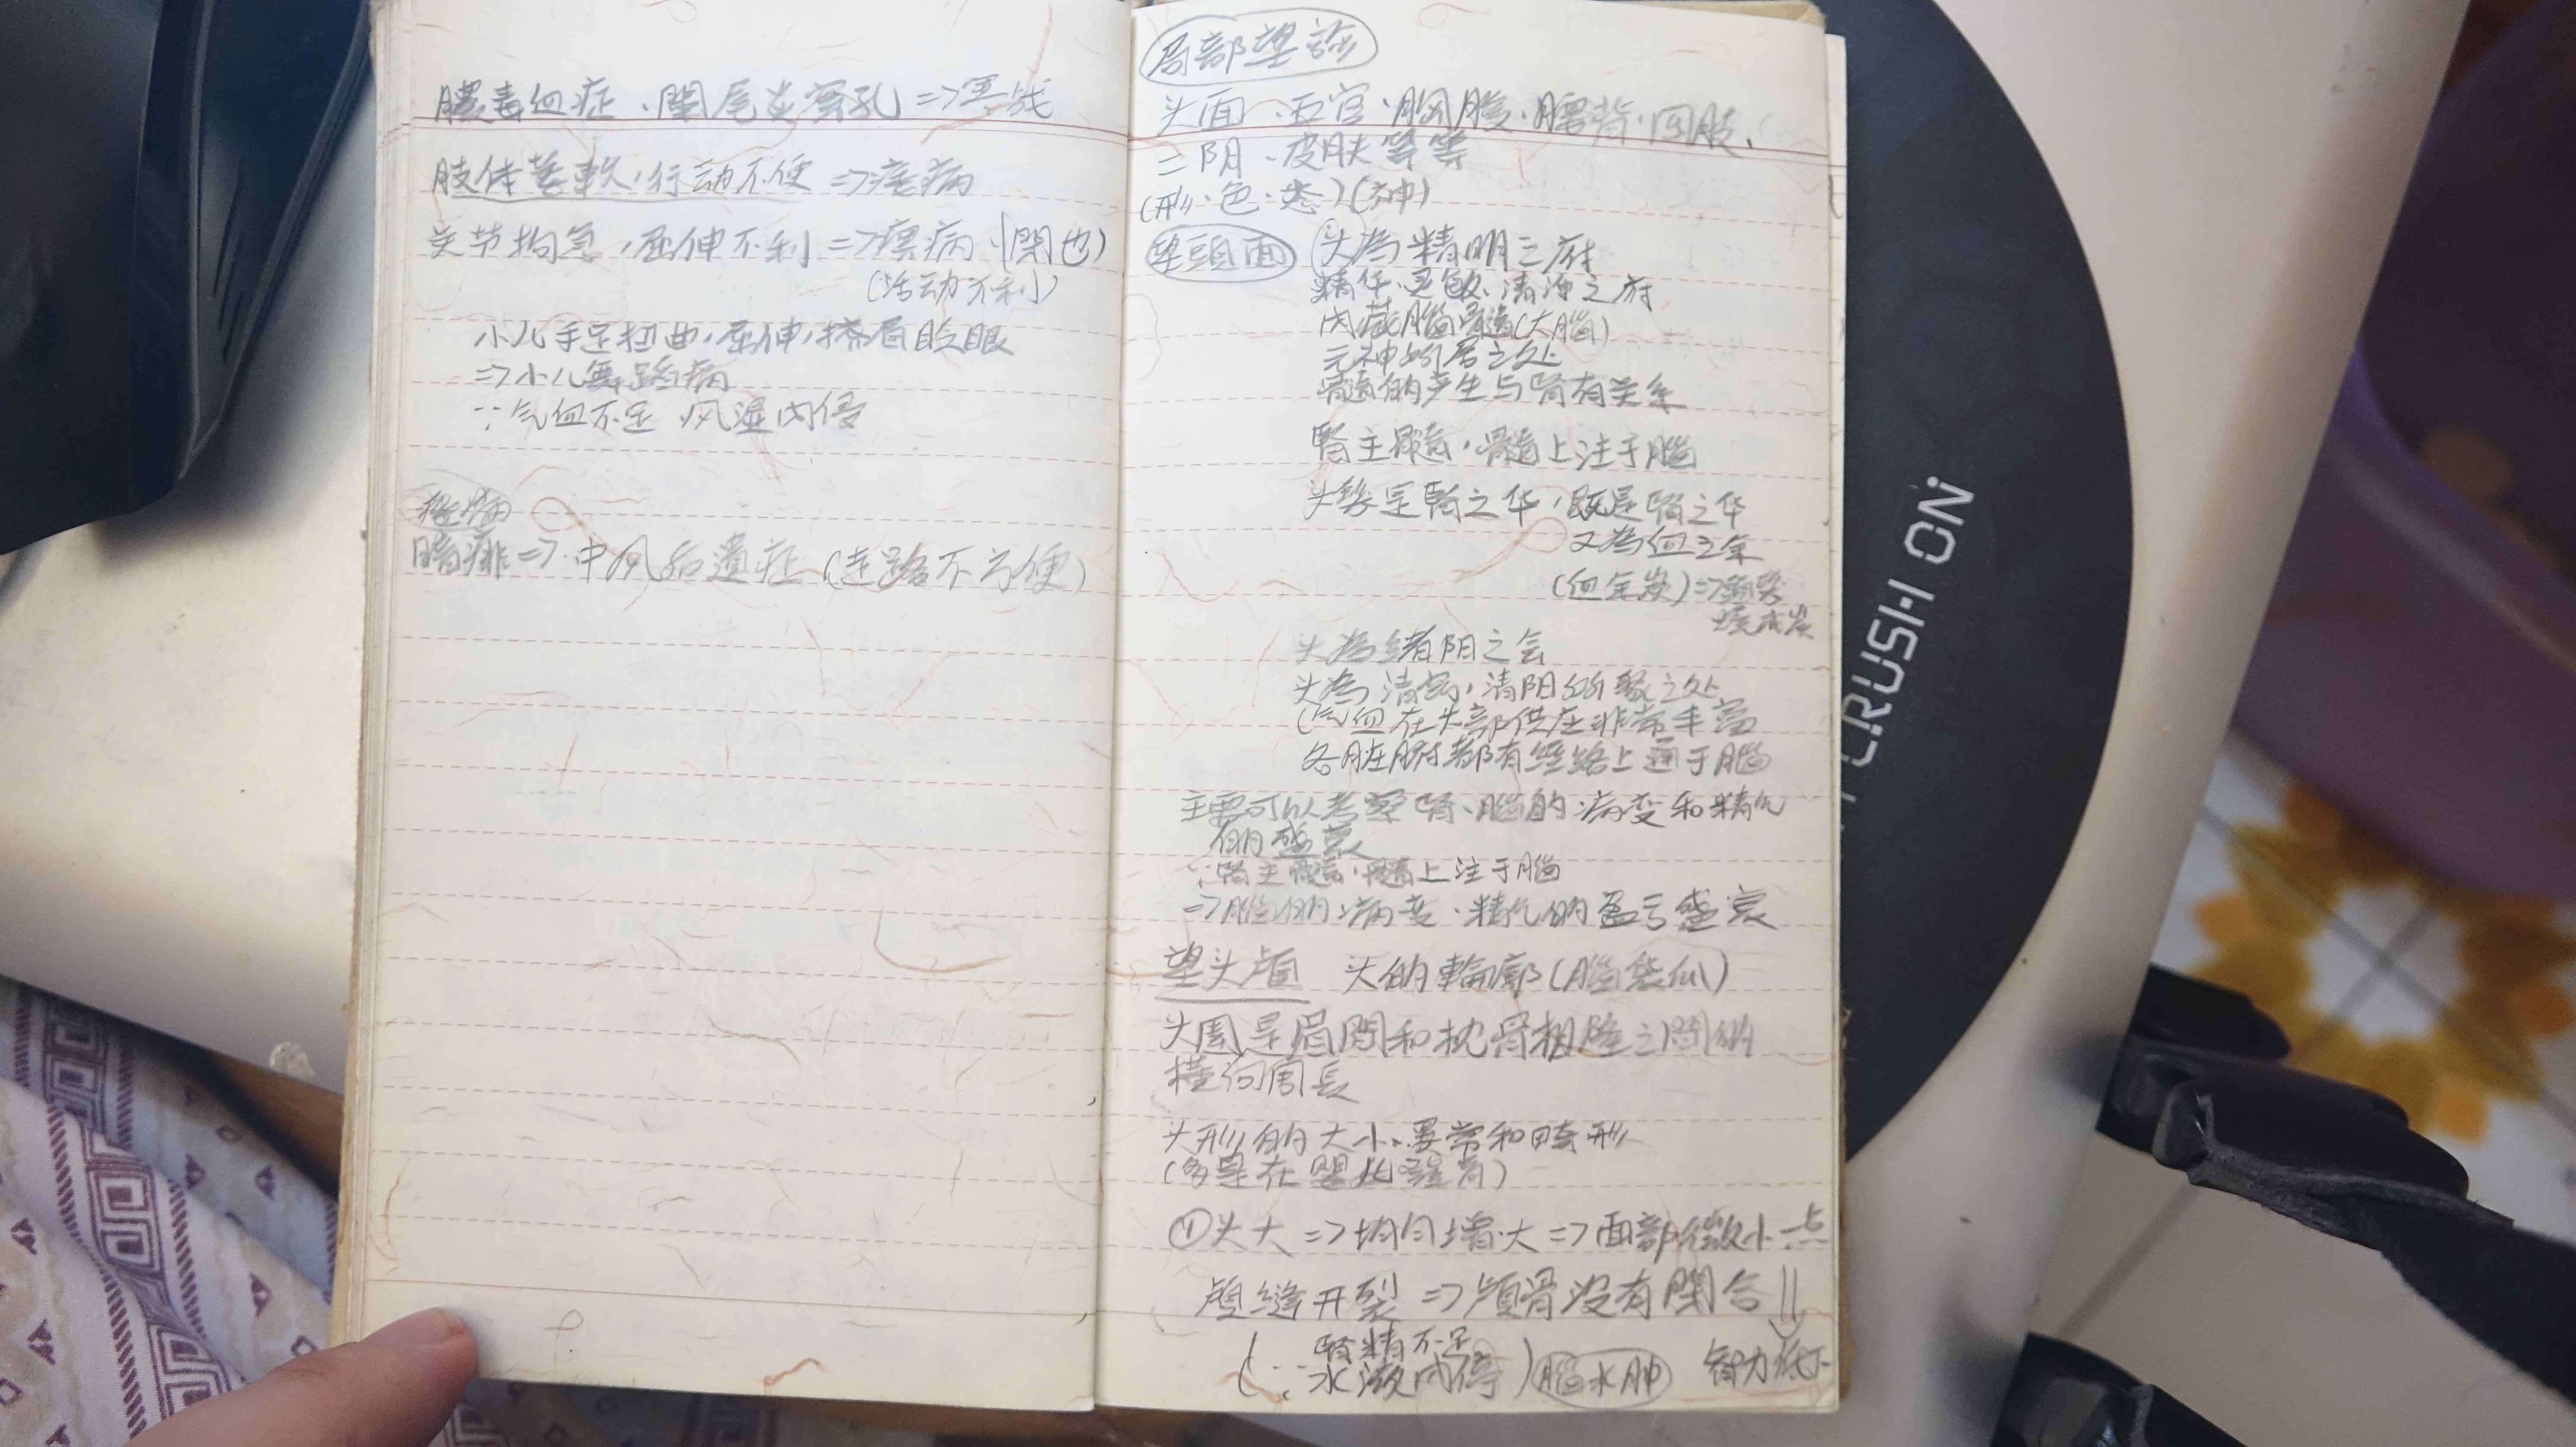 膿毒血症、闌尾炎穿孔 => 寒战
肢体萎軟,行动不便 => 痿病
关节拘急,屈伸不利 => 痹病 (閉也)
(活动不利)
小儿手足扭曲,屈伸,挤眉眨眼
=> 小儿舞蹈病
∵气血不足 风湿内侵
瘖痱 => 中风后遗症 (走路不方便)
局部望診
头面、五官、胸腹、腰背、四肢、
二阴、皮肤等等
(形、色、态) (神)
望頭面 头為精明之府
精华、灵敏、清净之府
内藏腦髓(大腦)
元神所居之处
髓的产生与腎有关系
腎主髓,髓上注于腦
头髮是腎之华,既是腎之华
又為血之余
(血余炭) => 頭髮
燒成炭
头為諸阳之会
头為清窍,清阳所聚之处
(气血在头部供应非常丰富
各脏腑都有經絡上通于腦
主要可以考察腎、腦的病变和精气
的盛衰
∵腎主髓,髓上注于腦
=> 腦的病变、精气的盈亏盛衰
望头颅 头的輪廓(腦袋瓜)
头围是眉間和枕骨粗隆之間的
横向周長
头形的大小、異常和畸形
(多是在嬰儿發育)
①头大 => 均匀增大 => 面部微小一点
颅缝开裂 => 颅骨没有閉合 ⇓
(∵腎精不足
∴水液内停) 腦水肿 智力低下
CRUSH ON